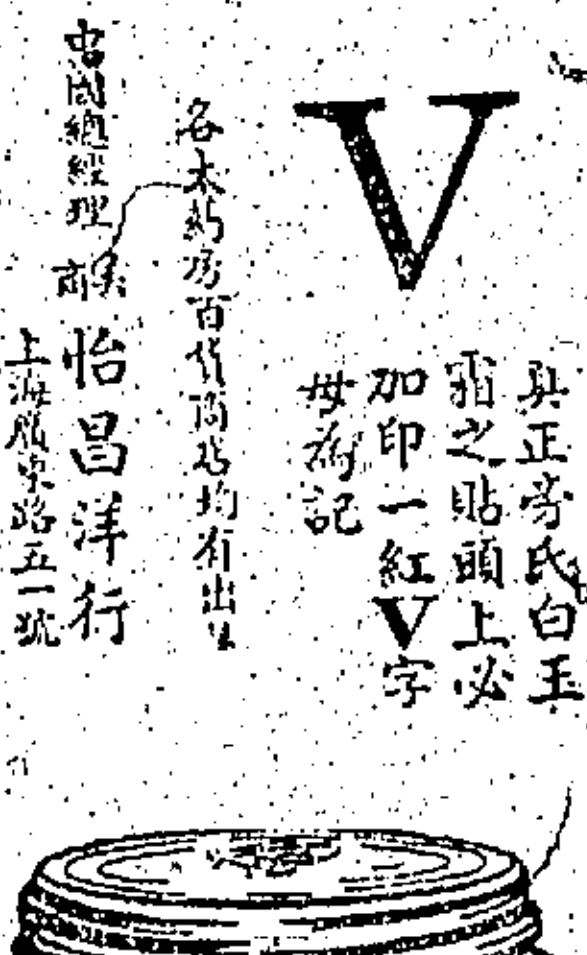 V
真正旁氏白玉
霜之貼頭上必
加印一紅V字
母為記
各大葯房百貨商店均有出售
中國總經理
英商
怡昌洋行
上海路五一號